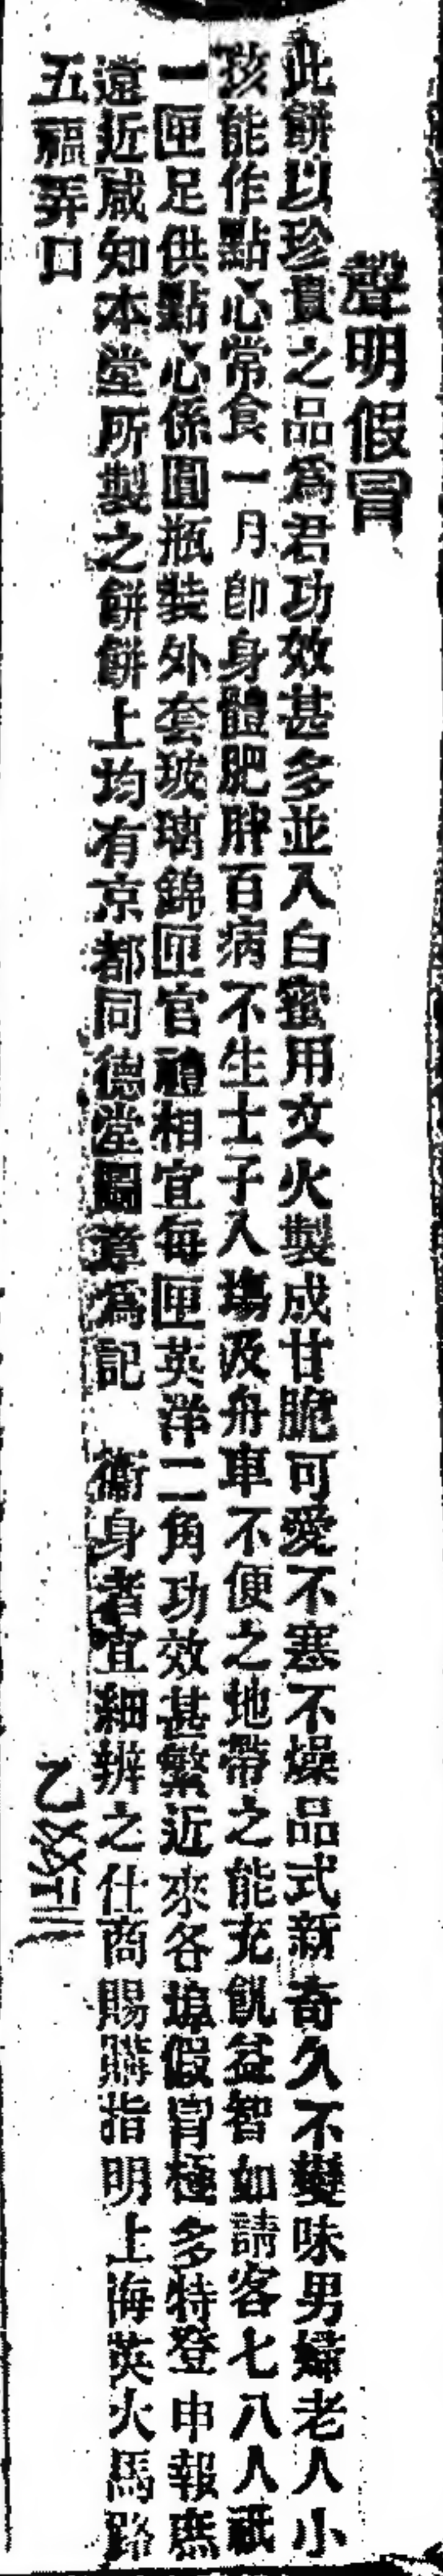 聲明假冒
此餅以珍貴之品爲君功效甚多並入白蜜用文火製成甘脆可愛不寒不燥品式新奇久不變味男婦老人小
孩能作點心常食一月卽身體肥胖百病不生士子入塲及舟車不便之地帶之能充飢益智如請客七八人祇
一匣足供點心係圓瓶裝外套玻璃錦匣官禮相宜每匣英洋二角功效甚繁近來各埠假冒極多特登申報庶
遠近咸知本堂所製之餅餅上均有京都同德堂圖章爲記 衛身者宜細辨之仕商賜購指明上海英大馬路
五福弄口